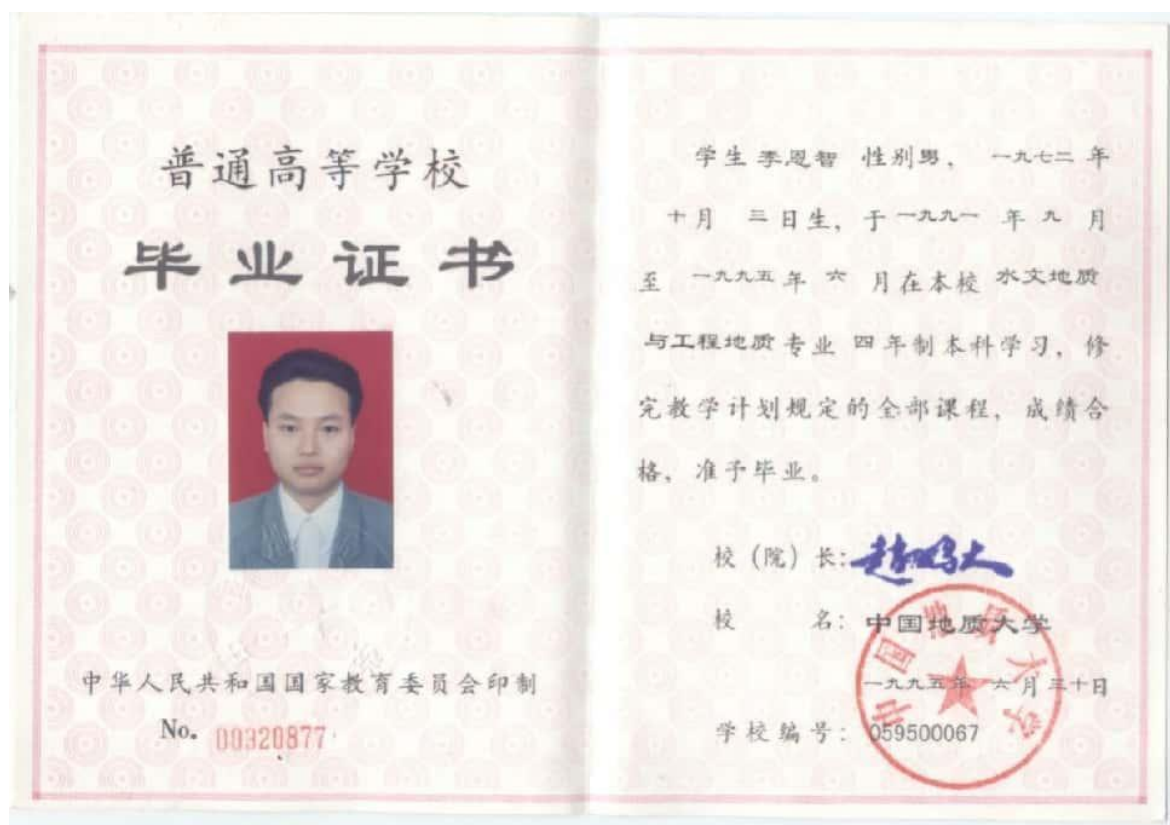 普通高等学校
毕业证书
中华人民共和国国家教育委员会印制
No. 00320877
学生 李恩智 性别男， 一九七二 年
十月 三日生，于一九九一 年 九 月
至 一九九五年 六 月在本校 水文地质
与工程地质专业 四年制本科学习，修
完教学计划规定的全部课程，成绩合
格，准予毕业。
校（院）长：赵鹏大
校 名：中国地质大学
一九九五年 六月三十日
学校编号：059500067
中国地质大学